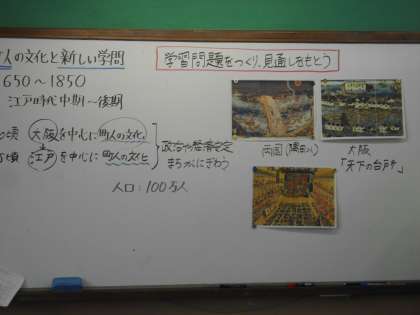 人の文化と新しい学問
学習問題をつくり、見通しをもとう
1650～1850
江戸時代中期～後期
頃 大阪を中心に町人の文化
頃 江戸を中心に町人の文化
政治や経済安定
まちがにぎわう
人口：100万人
両国(隅田川)
大阪
「天下の台所」